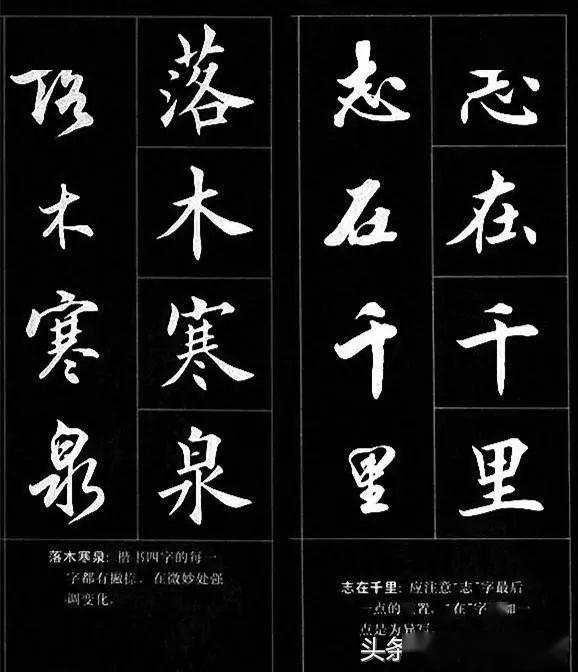 志在千里
志在千里
落木寒泉
落木寒泉
志在千里: 应注意“志”字最后
一点的置. “在”字加一
点是为异写.
落木寒泉: 楷书四字的每一
字都有撇捺. 在微妙处强
调变化.
头条